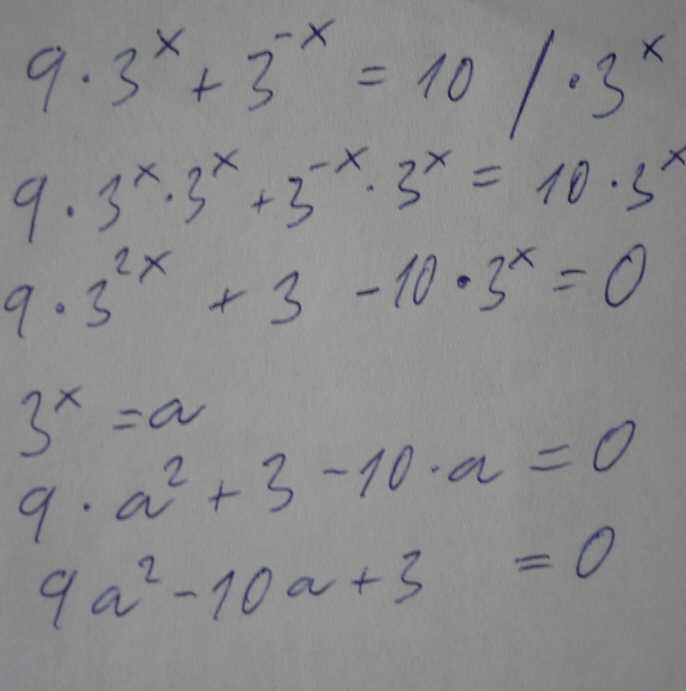 9 · 3^x + 3^-x = 10 / · 3^x
9 · 3^x · 3^x + 3^-x · 3^x = 10 · 3^x
9 · 3^2x + 3 - 10 · 3^x = 0
3^x = a
9 · a^2 + 3 - 10 · a = 0
9a^2 - 10a + 3 = 0